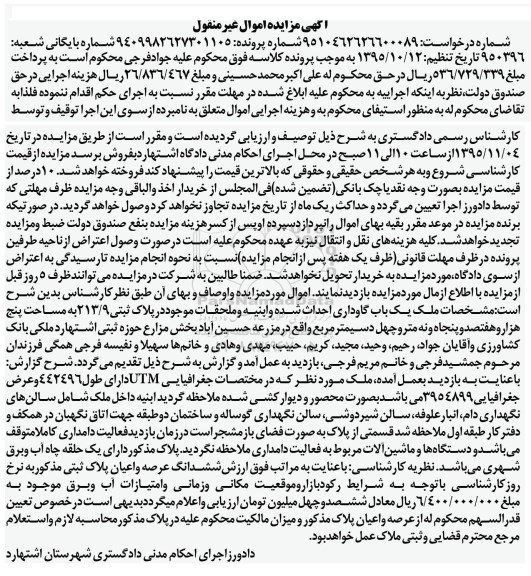 آگهی مزایده اموال غیر منقول
شماره درخواست: ۹۵۱۰۴۶۲۶۲۶۶۰۰۰۸۹ شماره پرونده: ۹۴۰۹۹۸۲۶۲۷۳۰۱۱۰۵ شماره بایگانی شعبه:
۹۵۰۳۹۶ تاریخ تنظیم: ۱۳۹۵/۱۰/۱۲ به موجب پرونده کلاسه فوق محکوم علیه جواد فرجی محکوم است به پرداخت
مبلغ ۵۳۶/۷۲۹/۳۳۹ ریال در حق محکوم له علی اکبر محمدحسینی و مبلغ ۲۶/۸۳۶/۴۶۷ ریال هزینه اجرایی در حق
صندوق دولت، نظر به اینکه اجراییه به محکوم علیه ابلاغ شده در مهلت مقرر نسبت به اجرای حکم اقدام ننموده فلذا به
تقاضای محکوم له به منظور استیفای محکوم به و هزینه اجرایی اموال متعلق به نامبرده از سوی این اجرا توقیف و توسط
کارشناس رسمی دادگستری به شرح ذیل توصیف و ارزیابی گردیده است و مقرر است از طریق مزایده در تاریخ
۱۳۹۵/۱۱/۰۴ از ساعت ۱۰ الی ۱۱ صبح در محل اجرای احکام مدنی دادگاه اشتهارد بفروش برسد مزایده از قیمت
کارشناسی شروع و به هر شخص حقیقی و حقوقی که بالاترین قیمت را پیشنهاد کند فروخته خواهد شد. ۱۰ درصد از
قیمت مزایده بصورت وجه نقد یا چک بانکی (تضمین شده) فی المجلس از خریدار اخذ و الباقی وجه مزایده ظرف مهلتی که
توسط دادورز اجرا تعیین می گردد و حداکثر یک ماه از تاریخ مزایده تجاوز نخواهد کرد وصول خواهد گردید. در صورتیکه
برنده مزایده در موعد مقرر بقیه بهای اموال را نپردازد سپرده او پس از کسر هزینه مزایده بنفع صندوق دولت ضبط و مزایده
تجدید خواهد شد. کلیه هزینه های نقل و انتقال نیز به عهده محکوم علیه است در صورت وصول اعتراض از ناحیه طرفین
پرونده در ظرف مهلت قانونی (ظرف یک هفته پس از انجام مزایده) نسبت به نحوه انجام مزایده تا رسیدگی به اعتراض
از سوی دادگاه، مورد مزایده به خریدار تحویل نخواهد شد. ضمنا طالبین به شرکت در مزایده می توانند ظرف ۵ روز قبل
از مزایده با اطلاع از مال مورد مزایده بازدید نمایند. اموال مورد مزایده و اوصاف و بهای آن طبق نظر کارشناس بدین شرح
است: مشخصات ملک یک باب گاوداری احداث شده و ابنیه و ملحقات موجود در پلاک ثبتی ۲۱۳/۹ به مساحت پنج
هزار و هفتصد و پنجاه و نه متر و چهل دسیمتر مربع واقع در مزرعه حسین آباد بخش مزارع حوزه ثبتی اشتهارد ملکی بانک
کشاورزی و آقایان جواد، رحیم، وحید، مجید، کریم، حبیب، مهدی و هادی و خانم ها سهیلا و نفیسه فرجی همگی فرزندان
مرحوم جمشید فرجی و خانم مریم فرجی، بازدید به عمل آمد و گزارش به شرح ذیل تقدیم می گردد. شرح گزارش:
با عنایت به بازدید بعمل آمده، ملک مورد نظر که در مختصات جغرافیایی UTM دارای طول ۴۴۲۴۹۶ و عرض
جغرافیایی ۳۹۵۴۸۹۹ می باشد بصورت محصور و دیوارکشی شده ملاحظه گردید ابنیه داخل ملک شامل سالن های
نگهداری دام، انبار علوفه، سالن شیردوشی، سالن نگهداری گوساله و ساختمان دو طبقه جهت اتاق نگهبان در همکف و
دفتر کار طبقه اول ملاحظه شد قسمتی از پلاک به صورت فضای باز مشجر است در زمان بازدید فعالیت دامداری کاملا متوقف
می باشد و دستگاه ها و ماشین آلات مربوط به فعالیت دامداری ملاحظه نگردید. پلاک مذکور دارای یک حلقه چاه آب و برق
شهری می باشد. نظریه کارشناسی: با عنایت به مراتب فوق ارزش ششدانگ عرصه و اعیان پلاک ثبتی مذکور به نرخ
روز کارشناسی با توجه به شرایط رکود بازار و موقعیت مکانی و زمانی و امتیازات آب و برق موجود به
مبلغ ۶/۴۰۰/۰۰۰/۰۰۰ ریال معادل ششصد و چهل میلیون تومان ارزیابی و اعلام میگردد بدیهی است در خصوص تعیین
قدرالسهم محکوم له از عرصه و اعیان پلاک مذکور و میزان مالکیت محکوم علیه در پلاک مذکور محاسبه لازم و استعلام
مرجع محترم قضایی و ثبتی ملاک عمل خواهد بود.
دادورز اجرای احکام مدنی دادگستری شهرستان اشتهارد